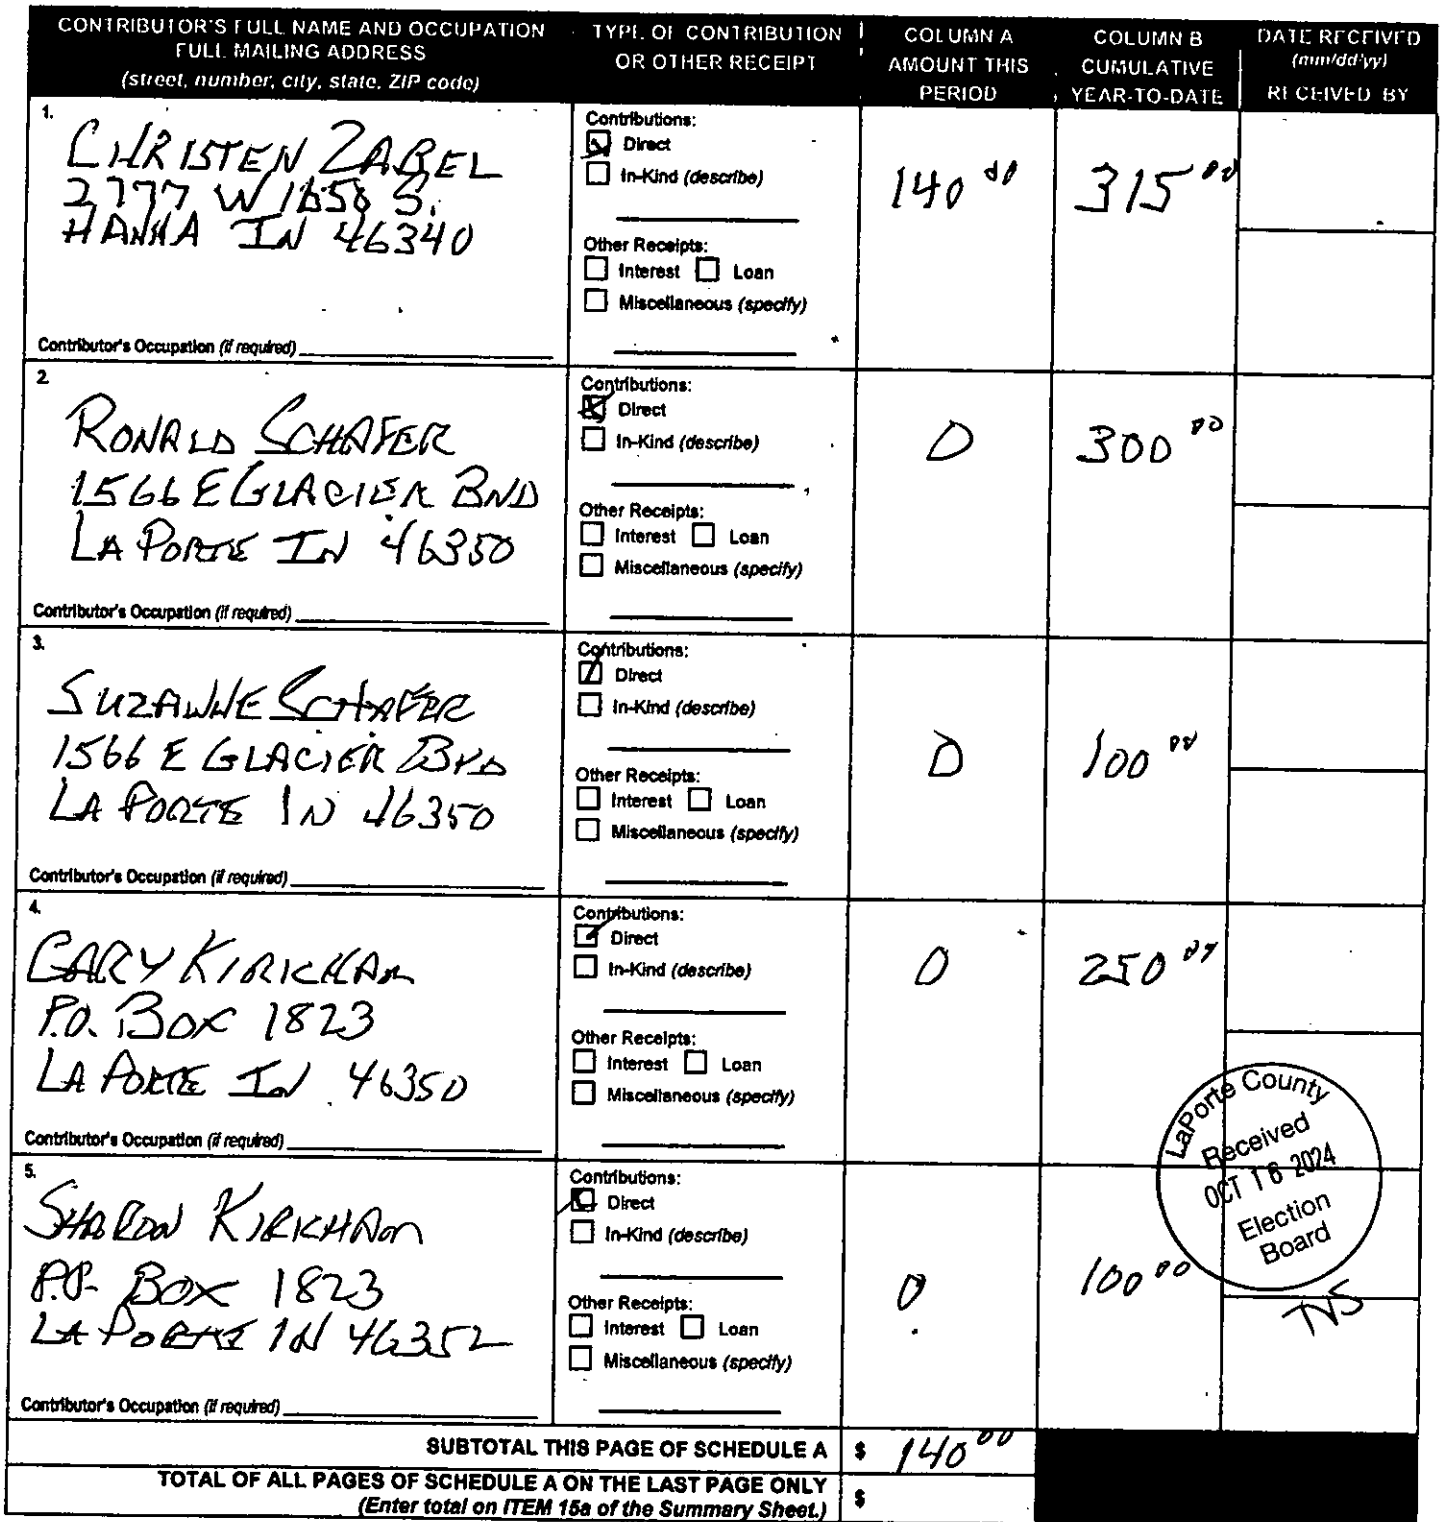 CONTRIBUTOR'S FULL NAME AND OCCUPATION
FULL MAILING ADDRESS
(street, number, city, state, ZIP code)
TYPE OF CONTRIBUTION
OR OTHER RECEIPT
COLUMN A
AMOUNT THIS
PERIOD
COLUMN B
CUMULATIVE
YEAR-TO-DATE
DATE RECEIVED
(mm/dd/yy)
RECEIVED BY
1.
CHRISTEN ZABEL
2777 W 1650 S.
HANNA IN 46340
Contributor's Occupation (if required)
Contributions:
Direct
In-Kind (describe)
Other Receipts:
Interest Loan
Miscellaneous (specify)
140 00
315 00
2.
RONALD SCHAFER
1566 E GLACIER BND
LA PORTE IN 46350
Contributor's Occupation (if required)
Contributions:
Direct
In-Kind (describe)
Other Receipts:
Interest Loan
Miscellaneous (specify)
0
300 00
3.
SUZANNE SCHAFER
1566 E GLACIER BND
LA PORTE IN 46350
Contributor's Occupation (if required)
Contributions:
Direct
In-Kind (describe)
Other Receipts:
Interest Loan
Miscellaneous (specify)
0
100 00
4.
GARY KIRKHAM
P.O. BOX 1823
LA PORTE IN 46350
Contributor's Occupation (if required)
Contributions:
Direct
In-Kind (describe)
Other Receipts:
Interest Loan
Miscellaneous (specify)
0
250 00
5.
SHARON KIRKHAM
P.O. BOX 1823
LA PORTE IN 46352
Contributor's Occupation (if required)
Contributions:
Direct
In-Kind (describe)
Other Receipts:
Interest Loan
Miscellaneous (specify)
0
100 00
LaPorte County
Received
OCT 16 2024
Election
Board
TVS
SUBTOTAL THIS PAGE OF SCHEDULE A $ 140 00
TOTAL OF ALL PAGES OF SCHEDULE A ON THE LAST PAGE ONLY
(Enter total on ITEM 15a of the Summary Sheet.) $